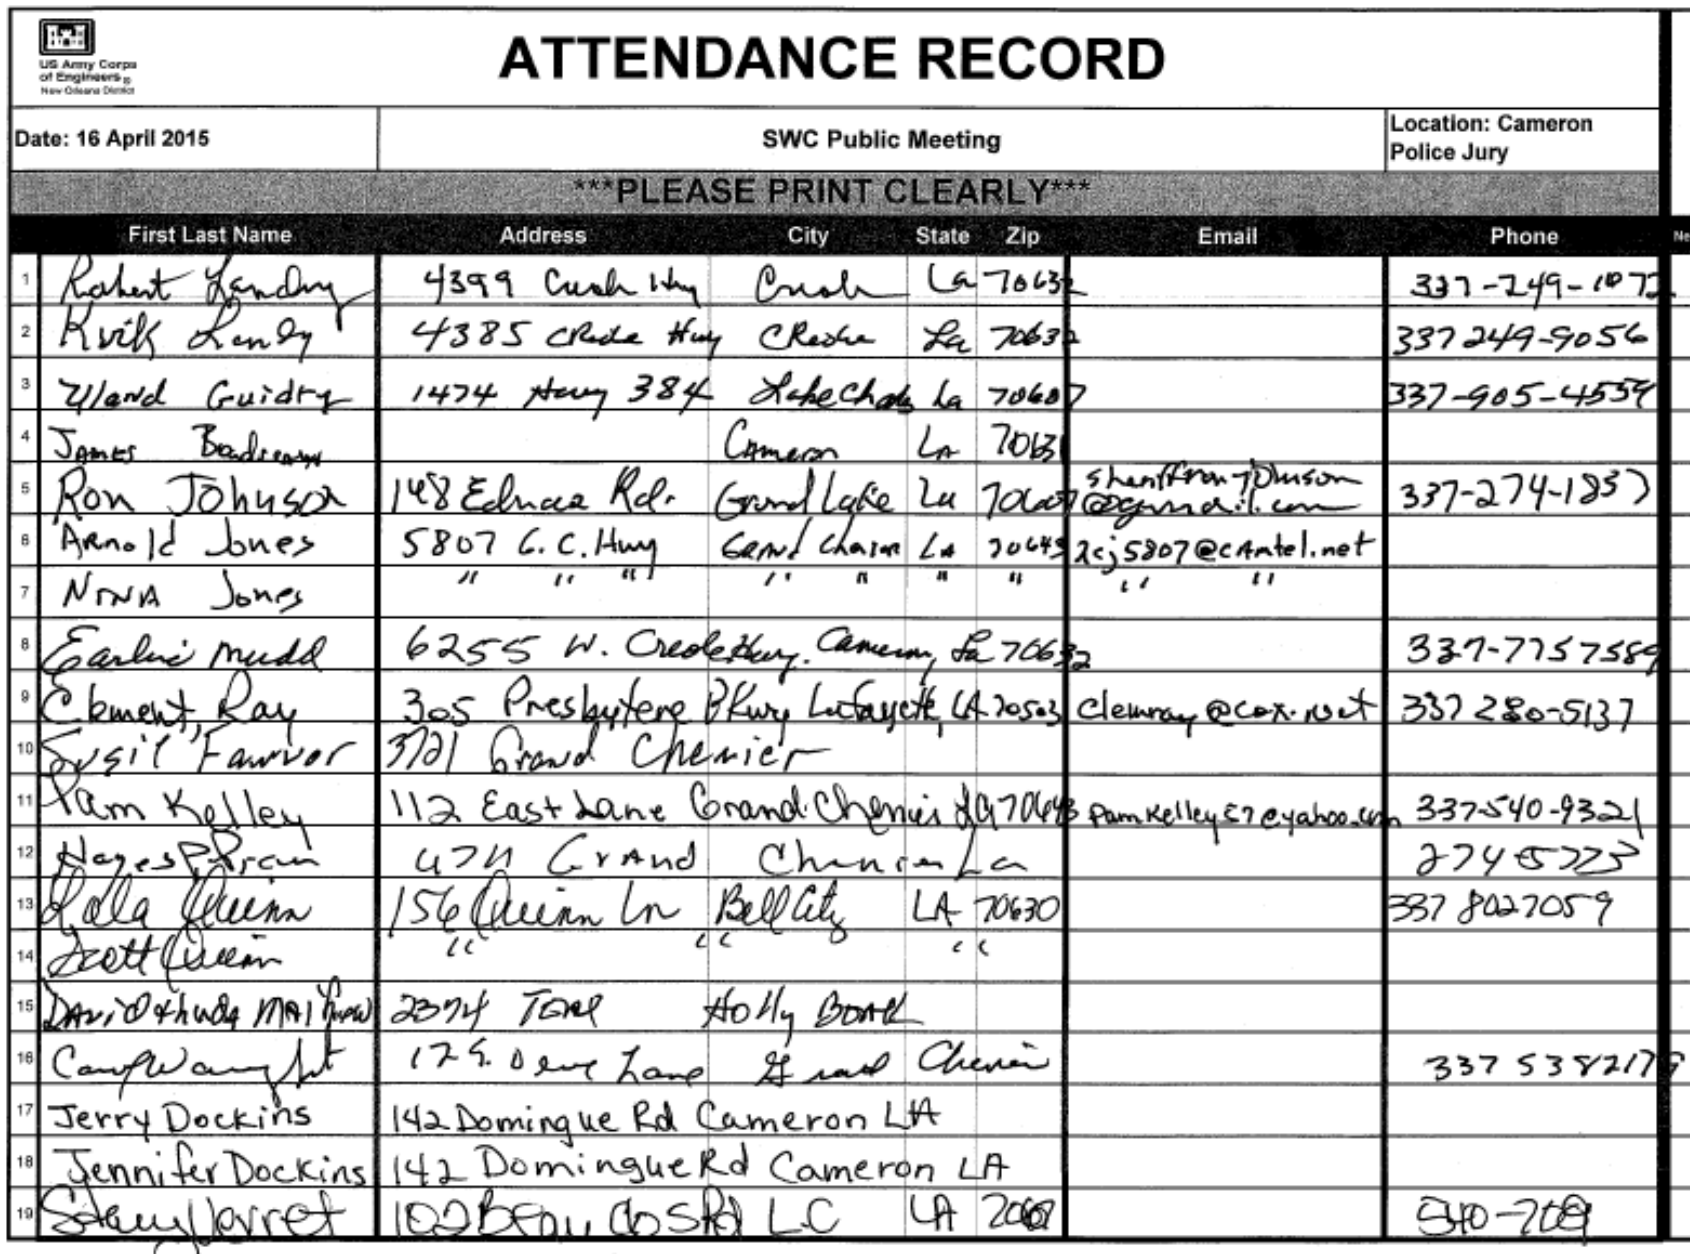 US Army Corps
of Engineers®
New Orleans District
ATTENDANCE RECORD
Date: 16 April 2015 SWC Public Meeting Location: Cameron
Police Jury
***PLEASE PRINT CLEARLY***
First Last Name Address City State Zip Email Phone Ne
1 Robert Landry 4399 Hwy La 70632 337-249-1072
2 Landry 4385 Hwy La 70632 337 249-9056
3 Uland Guidry 1474 Hwy 384 Lake Charles La 70607 337-905-4559
4 James Cameron LA 70631
5 Ron Johnson 148 Rd. Grand Lake La 70607 sheriffronjohnson
@gmail.com 337-274-1837
6 Arnold Jones 5807 G.C. Hwy Grand LA 70643 2cj5807@camtel.net
7 Nina Jones " " " " " " " " "
8 Mudd 6255 W. Creole Hwy. Cameron, La 70632 337-7757589
9 Clement, Ray 305 Presbytere PKwy Lafayette, LA 70503 clemray@cox.net 337 280-5137
10 3721 Grand Chenier
11 Pam Kelley 112 East Lane Grand Chenier LA 70643 Pamkelley57@yahoo.com 337-540-9321
12 Hayes Grand La
13 Quinn 156 Quinn Ln Bell City LA 70630 337 8027059
14 Scott Quinn " " "
15 David Holly
16 Lane Grand Chenier 337 5382179
17 Jerry Dockins 142 Domingue Rd Cameron LA
18 Jennifer Dockins 142 Domingue Rd Cameron LA
19 102 Rd L.C LA